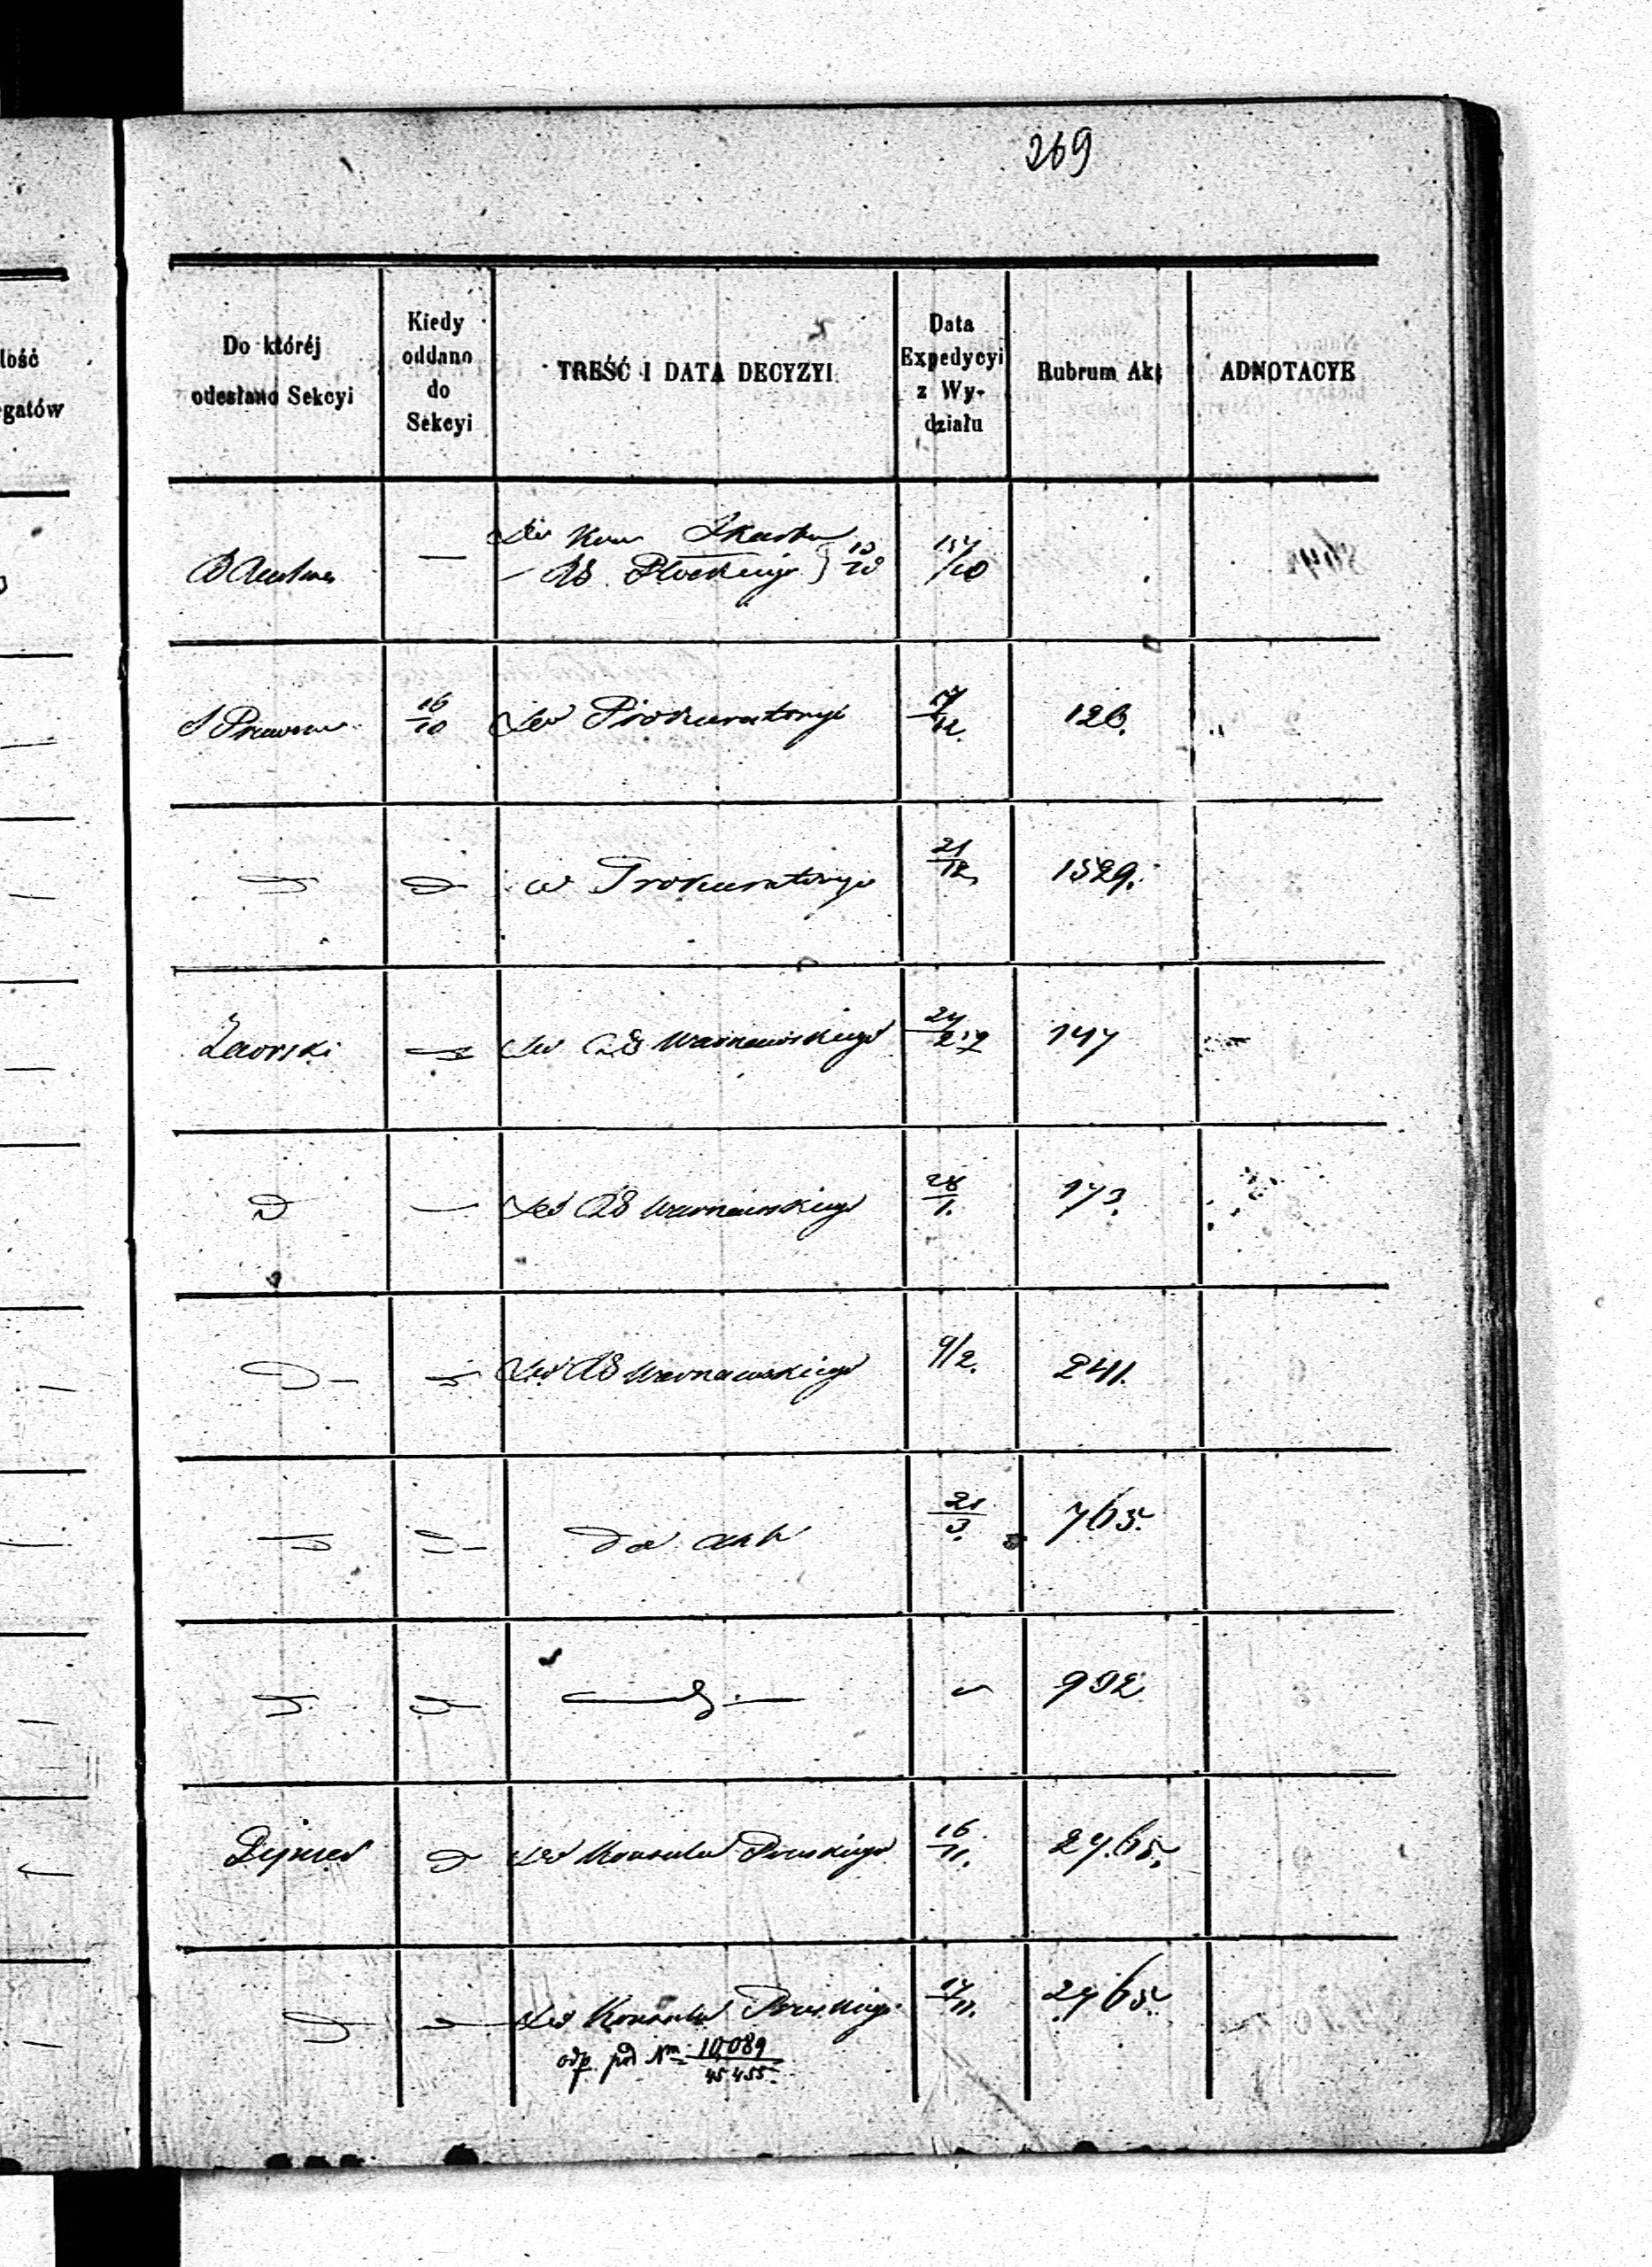 269
lość
egatów
Do któréj
odesłano Sekcyi
Kiedy
oddano
do
Sekcyi
TREŚĆ I DATA DECYZYI
Data
Expedycyi
z Wy-
działu
Rubrum Akt
ADNOTACYE
Do Kom Skarbu
RG. Płockiego } 10/10
—
S Prawna
16/10
Do Prokuratoryi
17/12.
126.
w Prokuratoryi
21/12
1529.
Zaorski
Do RG Warszawskiego
147
—
Do RG Warszawskiego
28/1.
173.
Do RG Warszawskiego
9/2.
2411.
do akt
21/3.
765.
902
Do Konsula Pruskiego
16/11.
2765.
Do Konsula Pruskiego
17/11.
2765.
odp. pod Nm 10,089/45455.